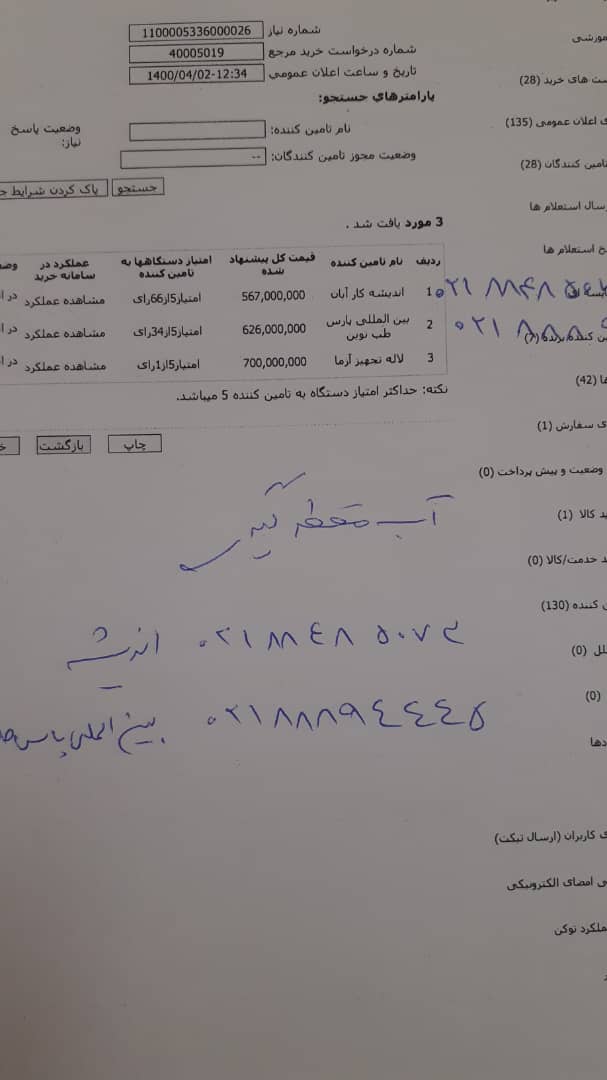 شماره نیاز 1100005336000026
شماره درخواست خرید مرجع 40005019
تاریخ و ساعت اعلان عمومی 1400/04/02-12:34
پارامترهای جستجو:
نام تامین کننده:
وضعیت پاسخ نیاز:
وضعیت مجوز تامین کنندگان: --
جستجو پاک کردن شرایط
3 مورد یافت شد .
ردیف نام تامین کننده قیمت کل پیشنهاد شده امتیاز دستگاهها به تامین کننده عملکرد در سامانه خرید
1 اندیشه کار آبان 567,000,000 امتیاز5از66رای مشاهده عملکرد
2 بین المللی پارس طب نوین 626,000,000 امتیاز5از34رای مشاهده عملکرد
3 لاله تجهیز آرما 700,000,000 امتیاز5از1رای مشاهده عملکرد
نکته: حداکثر امتیاز دستگاه به تامین کننده 5 میباشد.
چاپ بازگشت
آب مقطر گیری
اندیشه ۰۲۱۸۸۴۸۵۰۷۳
بین المللی پارس ۰۲۱۸۸۸۹۴۴۴۵
های خرید (28)
اعلان عمومی (135)
تامین کنندگان (28)
ارسال استعلام ها
استعلام ها
۰۲۱ ۸۸۴۸
۰۲۱ ۸۸۸
(42)
سفارش (1)
وضعیت و پیش پرداخت (0)
کالا (1)
خدمت/کالا (0)
کننده (130)
(0)
(0)
کاربران (ارسال تیکت)
امضای الکترونیکی
عملکرد توکن